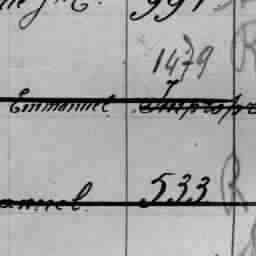 991
1479
Emmanuel Impropr
anuel 533 R